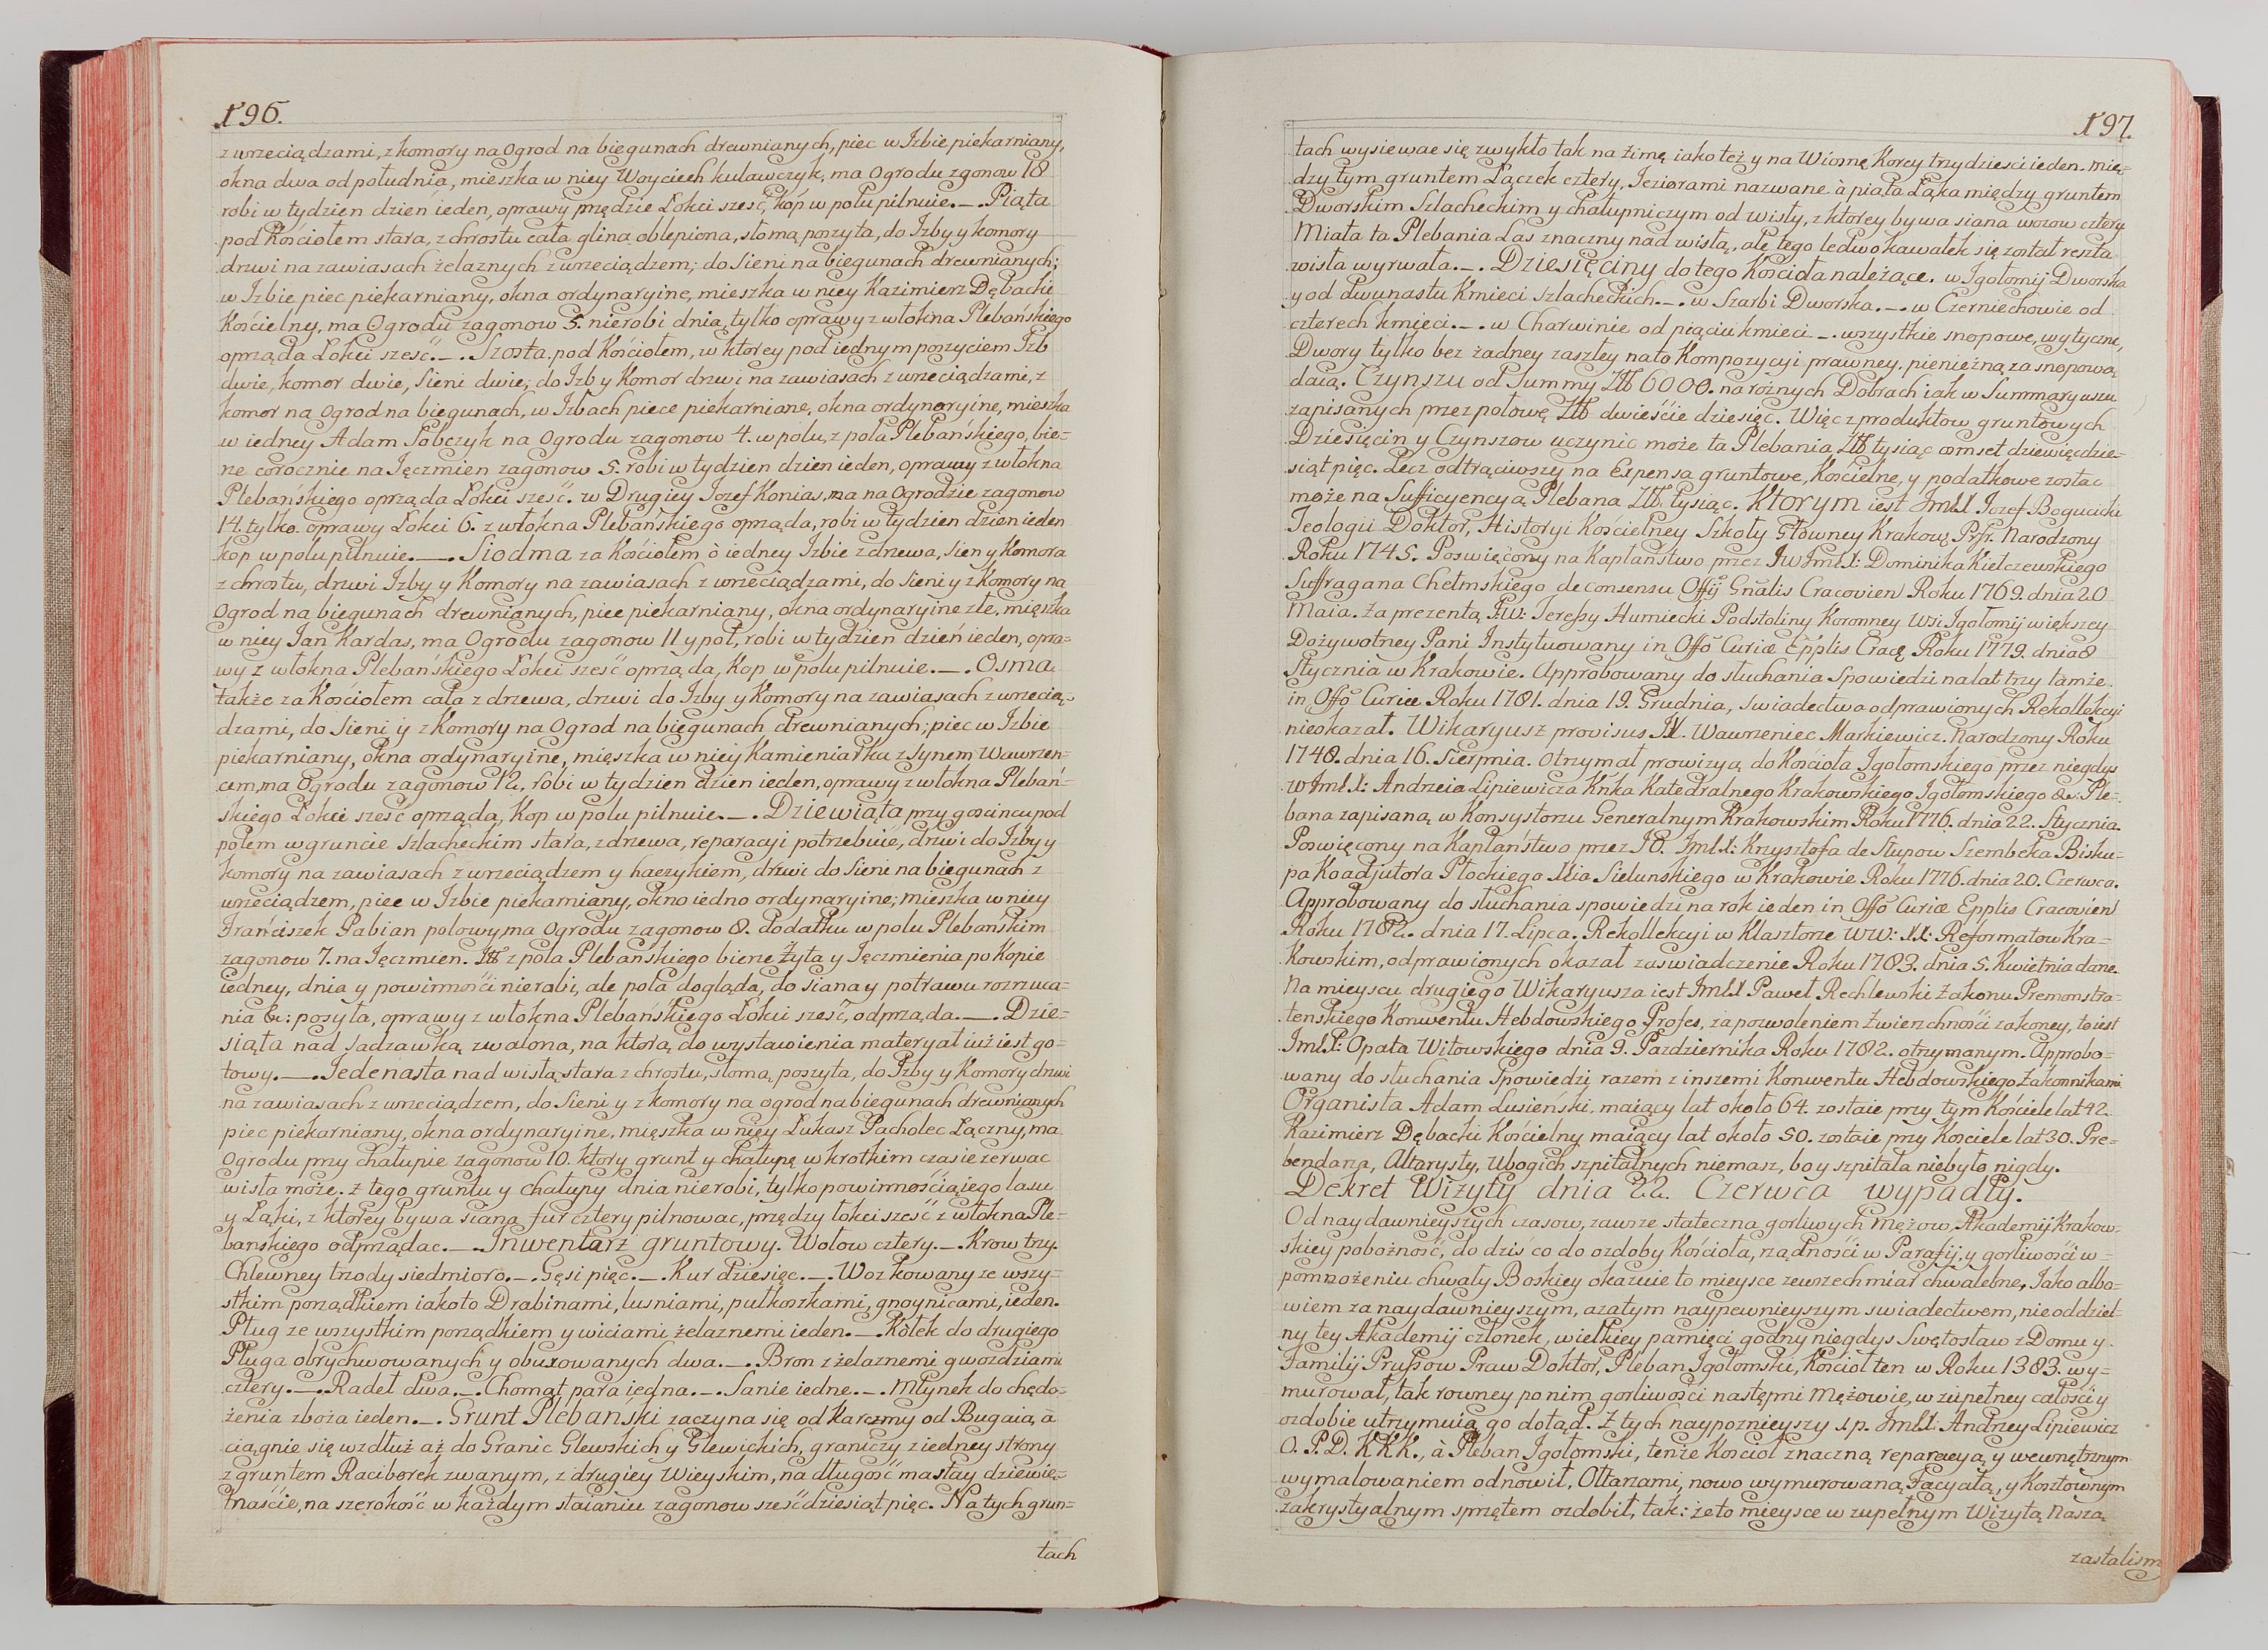 196.
z wrzeciądzami, z komory na Ogrod na biegunach drewnianych, piec w Izbie piekarniany,
okna dwa od południa, mieszka w niey Woyciech Kulawczyk, ma Ogrodu zgonow 18
robi w tydzien dzien ieden, oprawy przędzie Łokci sześć, kóp w polu pilnuie._. Piąta
pod Kościołem stara, z chrostu cała gliną oblepiona, słomą poszyta, do Izby y komory
drzwi na zawiasach żelaznych z wrzeciądzem; do Sieni na biegunach drewnianych;
w Izbie piec piekarniany, okna ordynaryine, mieszka w niey Kazimierz Dębacki
Kościelny, ma Ogrodu zagonow 5. nierobi dnia, tylko oprawy z włokna Plebańskiego
oprząda Łokci sześć._. Szosta pod Kościołem, w ktorey pod iednym poszyciem Izb
dwie, komor dwie, Sieni dwie, do Izb y Komor drzwi na zawiasach z wrzeciądzami, z
komor na Ogrod na biegunach, w Izbach piece piekarniane, okna ordynaryine, mieszka
w iedney Adam Sobczyk na Ogrodu zagonow 4. w polu, z pola Plebańskiego, bie=
rze corocznie na Jęczmien zagonow 5. robi w tydzien dzien ieden, oprawy z włokna
Plebańskiego oprząda Łokci sześć. w Drugiey Jozef Konias, ma na Ogrodzie zagonow
14. tylko. oprawy Łokci 6. z włokna Plebańskiego oprząda, robi w tydzien dzien ieden
kop w polu pilnuie.__. Siodma za Kościołem ò iedney Izbie z drzewa, Sien y Komora
z chrostu, drzwi Izby y Komory na zawiasach z wrzeciądzami, do Sieni y z Komory na
Ogrod na biegunach drewnianych, piec piekarniany, okna ordynaryine złe, mięszka
w niey Jan Kardas, ma Ogrodu zagonow 11 y poł, robi w tydzien dzień ieden, opra=
wy z włokna Plebańskiego Łokci sześć oprząda, Kop w polu pilnuie.__. Osma
także za Kościołem cała z drzewa, drzwi do Izby y Komory na zawiasach z wrzecią=
dzami, do Sieni y z Komory na Ogrod na biegunach drewnianych; piec w Izbie
piekarniany, okna ordynaryine, mięszka w niey Kamieniarka z Synem Wawrzen=
cem, ma Ogrodu zagonow 12, robi w tydzien dzien ieden, oprawy z włokna Plebań=
skiego Łokci sześć oprząda, Kop w polu pilnuie._. Dziewiąta przy goscincu pod
polem w gruncie Szlacheckim stara, z drzewa, reparacyi potrzebuie, drzwi do Izby y
komory na zawiasach z wrzeciądzem y haczykiem, drzwi do Sieni na biegunach z
wrzeciądzem, piec w Izbie piekarniany, okno iedno ordynaryine; mieszka w niey
Franciszek Pabian polowy, ma Ogrodu zagonow 8. dodatku w polu Plebańskim
zagonow 7. na Jęczmien. z pola Plebańskiego bierze Żyta y Jęczmienia po Kopie
iedney, dnia y powinności nierobi, ale pola dogląda, do siana y potrawu rozrzuca=
nia &c: posyła, oprawy z włokna Plebańskiego Łokci sześć, odprząda.__. Dzie=
siąta nad Sadzawką zwalona, na ktorą do wystawienia materyał iuż iest go=
towy.__. Jedenasta nad wisłą stara z chrostu, słomą poszyta, do Izby y Komory drzwi
na zawiasach z wrzeciądzem, do Sieni y z komory na ogrod na biegunach drewnianych
piec piekarniany, okna ordynaryine, mięszka w niey Lukasz Pacholec Łączny, ma
Ogrodu przy chałupie zagonow 10. ktory grunt y chałupę w krotkim czasie zerwac
wisła może. z tego gruntu y chałupy dnia nierobi, tylko powinnością iego lasu
y Łąki, z ktorey bywa siana fur cztery pilnowac, przędzy łokci sześć z włokna Ple=
banskiego odprządac._. Inwentarz gruntowy. Wołow cztery._. Krow trzy.
Chlewney trzody siedmioro._. Gęsi pięc._. Kur dziesięc._. Woz kowany ze wszy=
stkim porządkiem iakoto Drabinami, lusniami, pułkoszkami, gnoynicami, ieden.
Pług ze wszystkim porządkiem y wiciami żelaznemi ieden._. Kołek do drugiego
Pługa obrychwowanych y obuxowanych dwa._. Bron z żelaznemi gwozdziami
cztery._. Radeł dwa._. Chomąt para iedna._. Sanie iedne._. Młynek do chędo=
żenia zboża ieden._. Grunt Plebański zaczyna się od Karczmy od Bugaia, à
ciągnie się wzdłuż aż do Granic Glewskich y Glewickich, graniczy z iedney strony
z gruntem Raciborek zwanym, z drugiey Wieyskim, na długość ma stay dziewię=
tnaście, na szerokość w każdym staianiu zagonow sześćdziesiąt pięc. Na tych grun=
tach
197.
tach wysiewae się zwykło tak na zimę iako też y na Wiosnę Korcy trzydziesci ieden. mię=
dzy tym gruntem Łączek cztery, Jeziorami nazwane à piąta Łąka między gruntem
Dworskim Szlacheckim y chałupniczym od wisły, z ktorey bywa siana wozow cztery
Miała ta Plebania Las znaczny nad wisłą, ale tego ledwo kawałek się został reszta
wisła wyrwała._. Dziesięciny do tego Kościoła należące. w Igołomij Dworska
y od dwunastu Kmieci szlacheckich._. w Szarbi Dworska._. w Czerniechowie od
czterech kmieci._. w Charwinie od piąciu kmieci_. wszystkie snopowe, wytyczne,
Dwory tylko bez żadney zaszłey na to Kompozycyi prawney. pieniężną za snopową
daią. Czynszu od Summy Złł 6000. na rożnych Dobrach iak w Summaryuszu
zapisanych przez połowę Złł dwieście dziesięc. Więc z produktow gruntowych
Dziesięcin y Czynszow uczynic może ta Plebania Złł tysiąc osmset dziewięcdzie=
siąt pięc. Lecz odtrąciwszy na Expensa gruntowe, Kościelne, y podatkowe zostac
może na Sufficyencyą Plebana Złł. tysiąc. Ktorym iest JmłX Jozef Bogucicki
Teologii Doktor, Historyi Kościelney Szkoły Głowney Krakow: Prfr. Narodzony
Roku 1745. Poswięcony na Kapłaństwo przez JwJmłX: Dominika Kiełczewskiego
Suffragana Chełmskiego de consensu Offij Gñalis Cracovien Roku 1769. dnia 20
Maia. Za prezentą J:W: Teressy Humiecki Podstoliny Koronney wsi Igołomij większey
Dożywotney Pani Instytuowany in Offõ Curiæ Epplis Crac: Roku 1779. dnia 8
Stycznia w Krakowie. Approbowany do słuchania Spowiedzi na lat trzy tamże
in Offõ Curiæ Roku 1781. dnia 19. Grudnia, Swiadectwa odprawionych Rekollekcyi
nieokazał. Wikaryusz provisus JX. Wawrzeniec Markiewicz. Narodzony Roku
1748. dnia 16. Sierpnia. Otrzymał prowizyą do Kościoła Igołomskiego przez niegdys
w JmłX: Andrzeia Lipiewicza Knka Katedralnego Krakowskiego, Igołomskiego &c: Ple=
bana zapisaną w Konsystorzu Generalnym Krakowskim Roku 1776. dnia 22. Stycznia.
Poswięcony na Kapłaństwo przez JO. JmłX: Krzysztofa de Słupow Szembeka Bisku=
pa Koadjutora Płockiego Xcia Sielunskiego w Krakowie Roku 1776. dnia 20. Czerwca.
Approbowany do słuchania spowiedzi na rok ieden in Offõ Curiæ Epplis Cracovien
Roku 1782. dnia 17. Lipca. Rekollekcyi w Klasztorze WW: XX: Reformatow Kra=
kowskim, odprawionych okazał zaswiadczenie Roku 1783. dnia 5. Kwietnia dane.
Na mieyscu drugiego Wikaryusza iest JmłX Paweł Rechlewski Zakonu Premonstra=
tenskiego Konwentu Hebdowskiego Profes, za pozwoleniem Zwierzchności zakoney, to iest
JmłX: Opata Witowskiego dnia 9. Pazdziernika Roku 1782. otrzymanym. Approbo=
wany do słuchania Spowiedzi razem z inszemi Konwentu Hebdowskiego Zakonnikami.
Organista Adam Lusieński, maiący lat około 64. zostaie przy tym Kościele lat 42.
Kazimierz Dębacki Kościelny maiący lat około 50. zostaie przy Kosciele lat 30. Pre=
bendarza, Altarysty, Ubogich szpitalnych niemasz, bo y szpitala niebyło nigdy.
Dekret Wizyty dnia 22. Czerwca wypadły.
Od naydawnieyszych czasow, zawsze stateczna gorliwych mężow, Akademij Krakow=
skiey pobożność, do dziś co do ozdoby Kościoła, rządności w Parafij, y gorliwości w=
pomnożeniu chwały Boskiey okazuie to mieysce zewszechmiar chwalebne. Jako albo=
wiem za naydawnieyszym, azatym naypewnieyszym swiadectwem, nieoddziel=
ny tey Akademij członek, wielkiey pamięci godny niegdys Swętosław z Domu y
Familij Prussow Praw Doktor, Pleban Igołomski, Kościoł ten w Roku 1383. wy=
murował, tak rowney po nim gorliwości następni Mężowie, w zupełney całości y
ozdobie utrzymuią go dotąd. Z tych naypoznieyszy ś.p. JmłX: Andrzey Lipiewicz
O. P. D. K K K., à Pleban Igołomski, tenże Kościoł znaczną reparacyą, y wewnętrznym
wymalowaniem odnowił, Ołtarzami, nowo wymurowaną Facyatą, y Kosztownym
zakrystyalnym sprzętem ozdobił, tak: że to mieysce w zupełnym Wizytą Naszą
zastalism